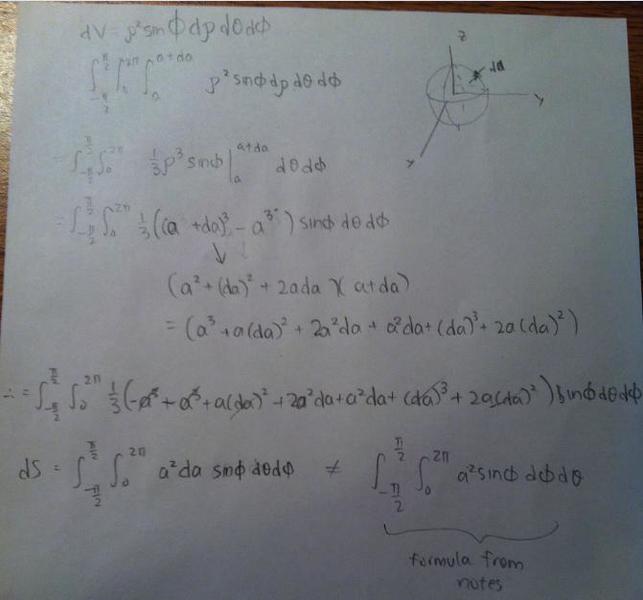 dV = ρ²sinϕ dρ dθ dϕ
∫_{-π/2}^{π/2} ∫_0^{2π} ∫_a^{a+da} ρ² sinϕ dρ dθ dϕ
z
da
y
x
= ∫_{-π/2}^{π/2} ∫_0^{2π} 1/3 ρ³ sinϕ |_a^{a+da} dθ dϕ
= ∫_{-π/2}^{π/2} ∫_0^{2π} 1/3 ((a + da)³ - a³) sinϕ dθ dϕ
↓
(a² + (da)² + 2ada)(a + da)
= (a³ + a(da)² + 2a²da + a²da + (da)³ + 2a(da)²)
∴ = ∫_{-π/2}^{π/2} ∫_0^{2π} 1/3 (-a³ + a³ + a(da)² + 2a²da + a²da + (da)³ + 2a(da)²) sinϕ dθ dϕ
dS = ∫_{-π/2}^{π/2} ∫_0^{2π} a²da sinϕ dθ dϕ ≠ ∫_{-π/2}^{π/2} ∫_0^{2π} a²sinϕ dϕ dθ
formula from
notes